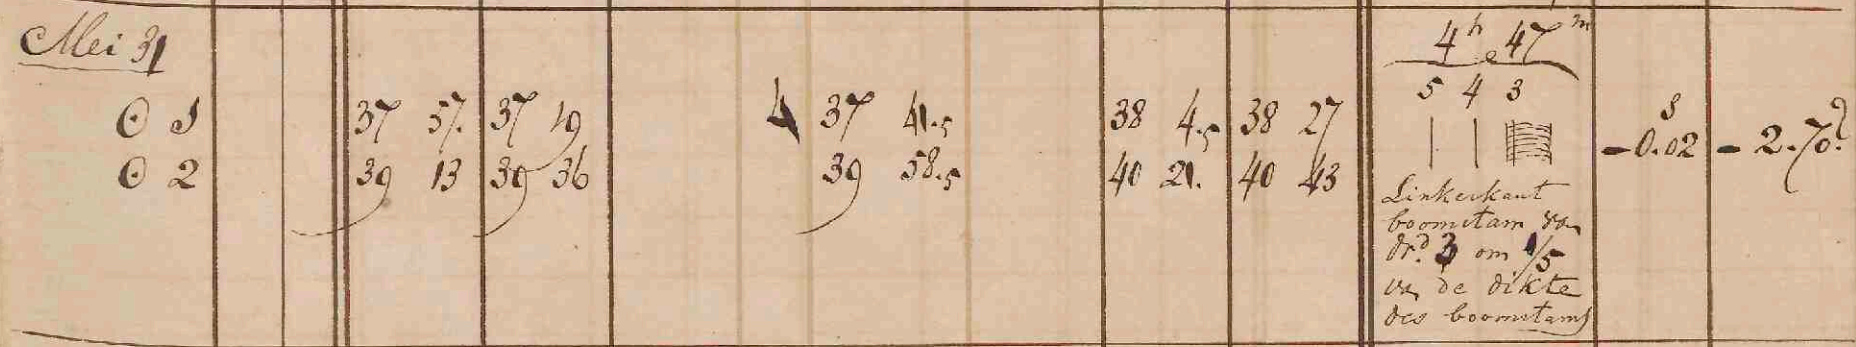 Mei 31
4h 47m
5 4 3
☉ 1 37 57. 37 19 4 37 41.5 38 4.5 38 27
- 0.02s - 2.70?
☉ 2 39 13 39 36 39 58.5 40 21. 40 43
Linkerkant
boomstam van
drd. 3 om 1/5
van de dikte
des boomstams